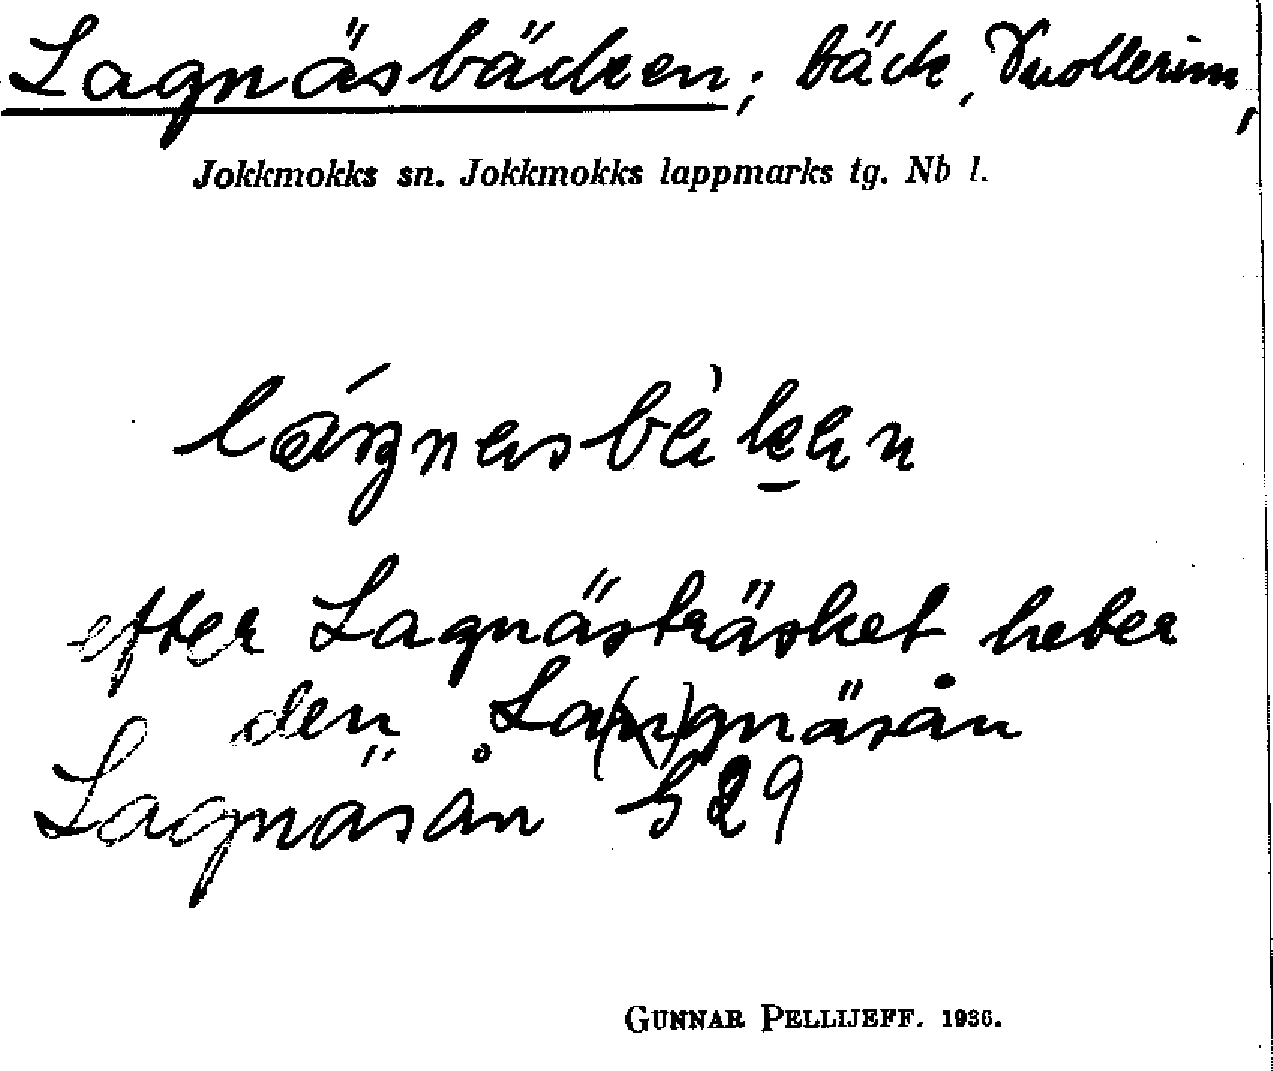 Lagnäsbäcken, bäck, Vuollerim,
Jokkmokks sn. Jokkmokks lappmarks tg. Nb l.
efter Lagnästräsket heter
den La(n)gnäsån
Lagnäsån S 29
GUNNAR PELLIJEFF. 1936.